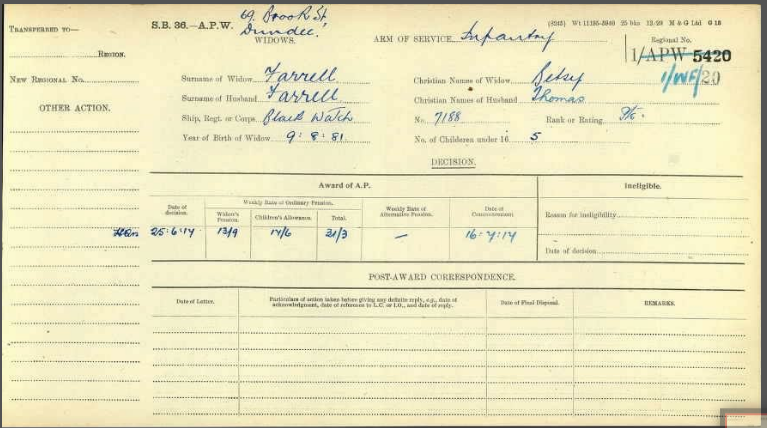 TRANSFERRED TO—
REGION.
NEW REGIONAL NO.
OTHER ACTION.
S.B. 36.—A.P.W.
69, Brook St
Dundee.
WIDOWS.
ARM OF SERVICE Infantry
Regional No.
1/APW 5420
1/WF/20
Surname of Widow Farrell
Christian Names of Widow Betsy
Surname of Husband Farrell
Christian Names of Husband Thomas
Ship, Regt. or Corps Black Watch
No. 7188
Rank or Rating. Pte.
Year of Birth of Widow 9:8:81.
No. of Children under 16 5
DECISION.
Award of A.P.
Ineligible.
Date of decision.
Weekly Rate of Ordinary Pension.
Widow's Pension.
Children's Allowance.
Total.
Weekly Rate of Alternative Pension.
Date of Commencement
Reason for ineligibility
25:6:17 13/9 17/6 31/3 — 16:7:17
Date of decision
POST-AWARD CORRESPONDENCE.
Date of Letter.
Particulars of action taken before giving any definite reply, e.g., date of acknowledgment, date of reference to L.C. or I.O., and date of reply.
Date of Final Disposal.
REMARKS.